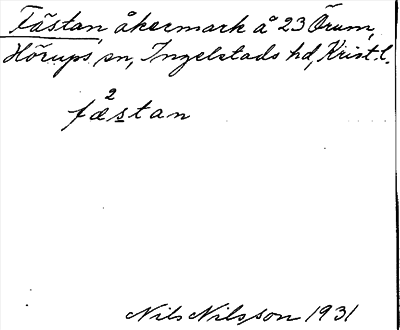 Fästan, åkermark å 23 Örum,
Hörups sn, Ingelstads hd, Krist. l.
2
fæstan
Nils Nilsson 1931